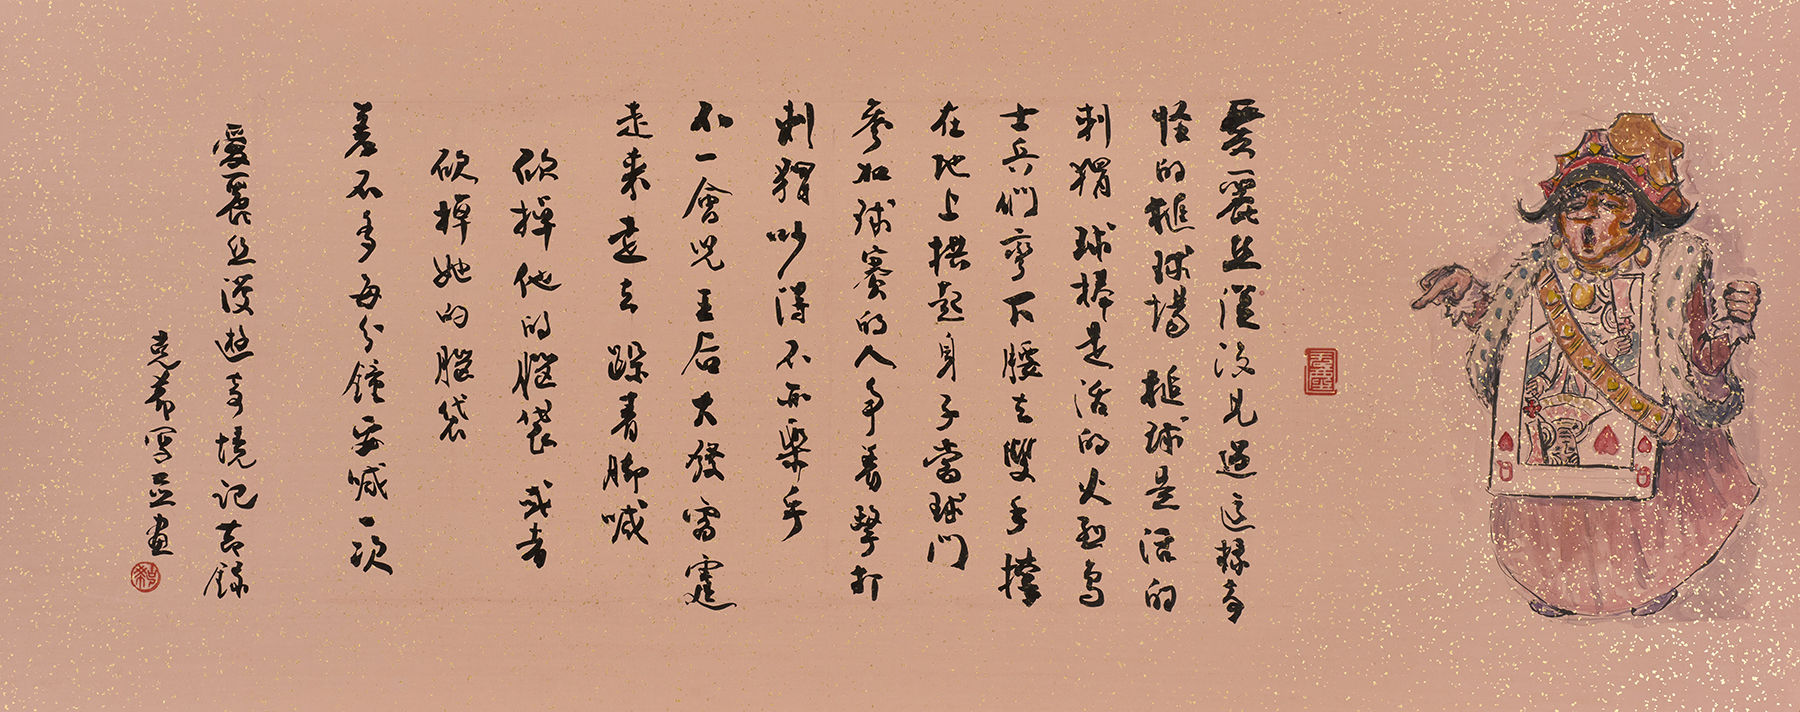 愛麗丝從沒見過這樣奇
怪的槌球場 槌球是活的
刺猬 球棒是活的火烈鳥
士兵們彎下腰去雙手撐
在地上拱起身子當球門
參加球賽的人爭着擊打
刺猬 吵得不亦樂乎
不一會兒王后大發雷霆
走來走去 跺着脚喊
砍掉他的腦袋 或者
砍掉她的腦袋
差不多每分鐘要喊一次
愛麗丝漫遊奇境記节錄
克希寫並畫